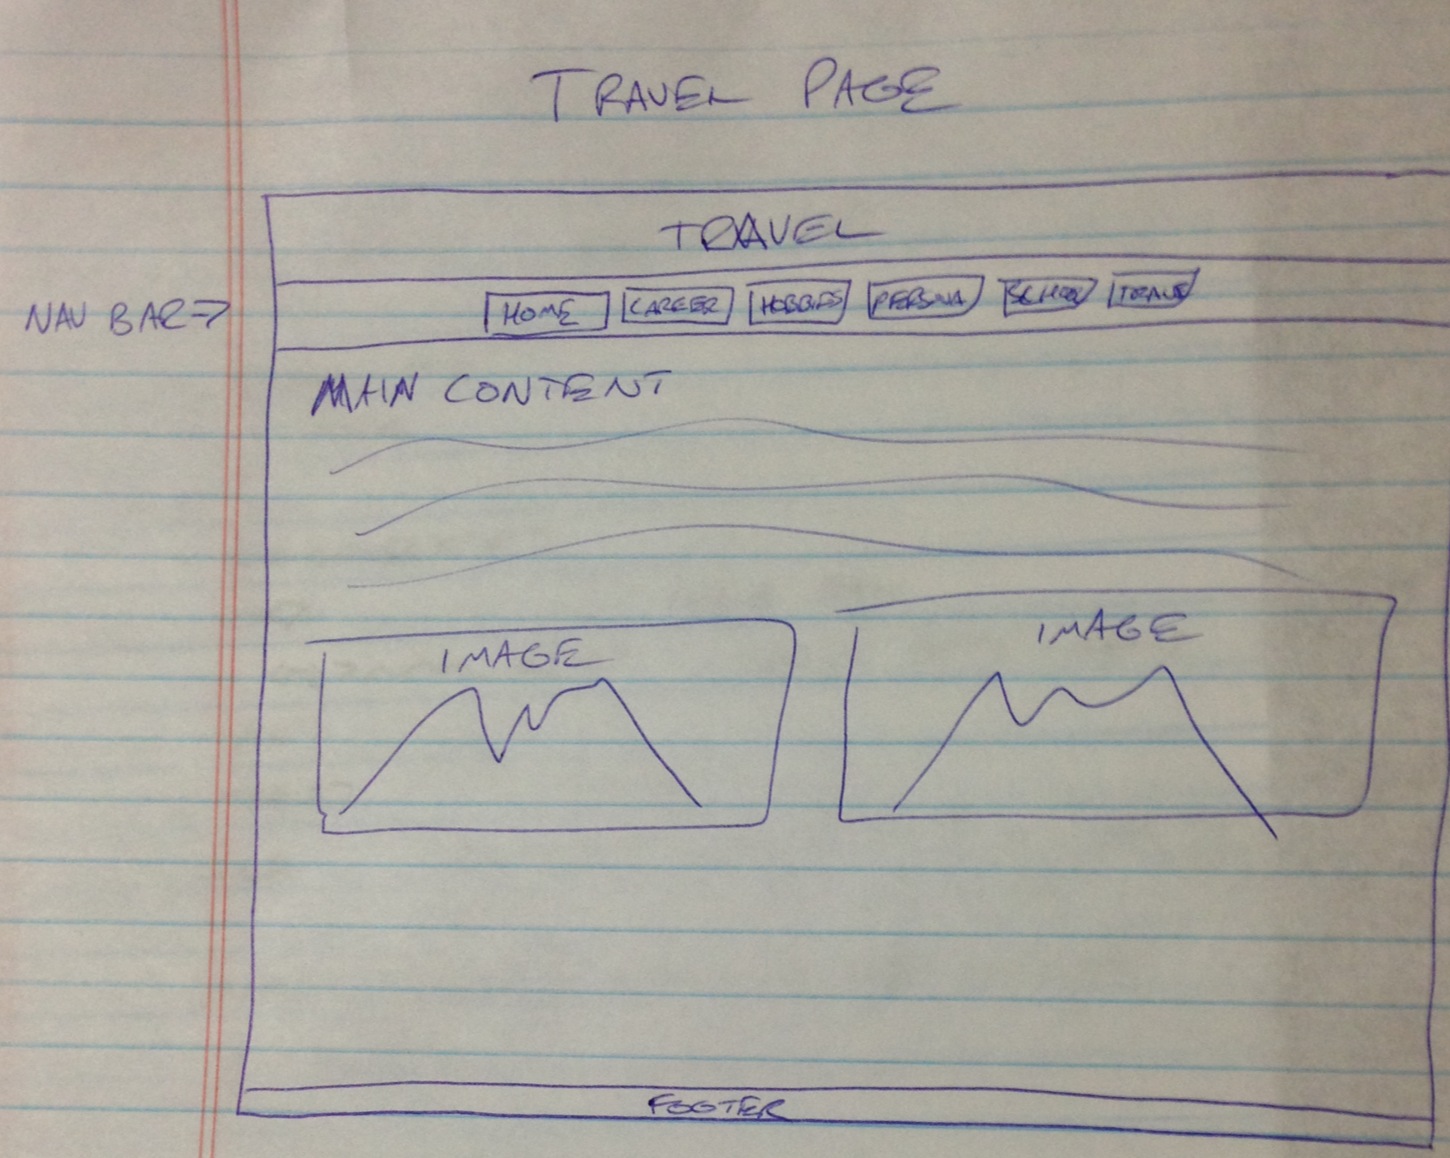 TRAVEL PAGE
TRAVEL
NAV BAR → HOME CAREER HOBBIES PERSONAL SCHOOL TRAVEL
MAIN CONTENT
IMAGE IMAGE
FOOTER